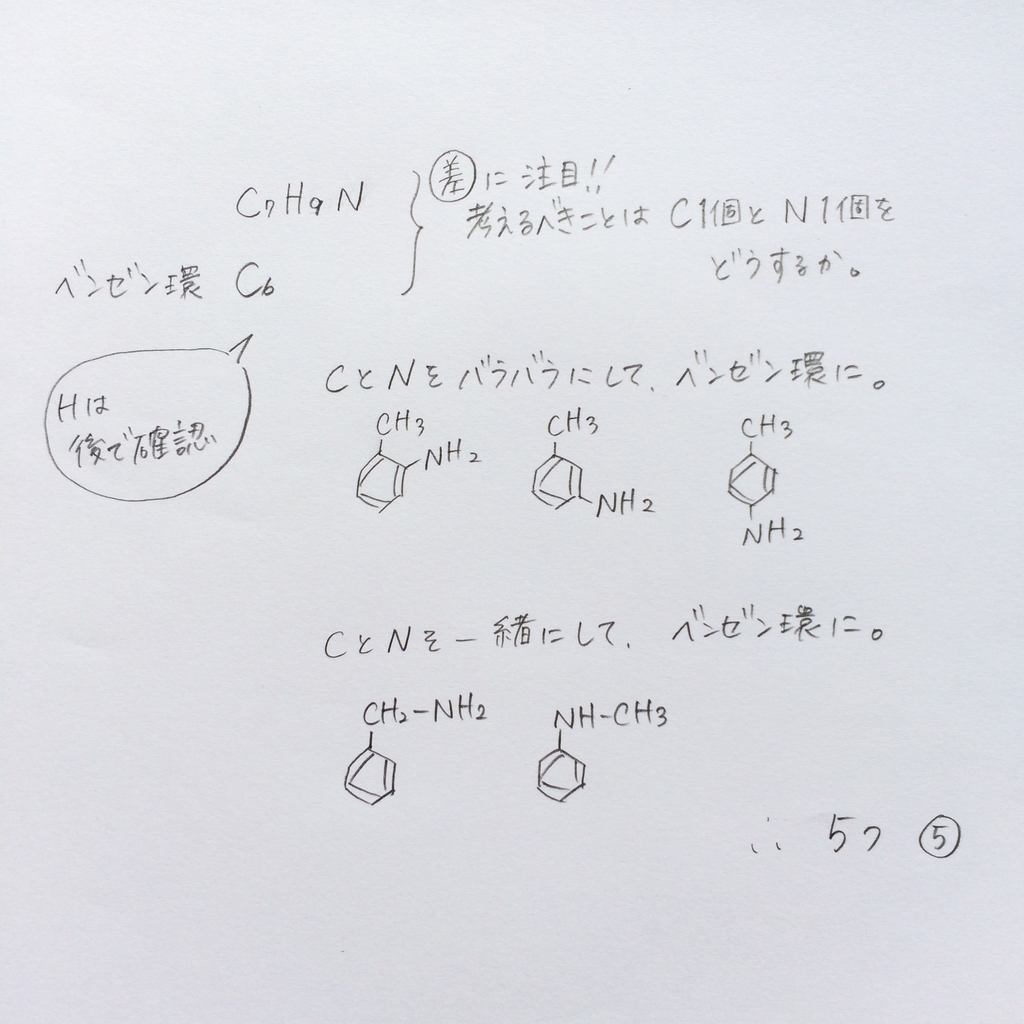 C7H9N
差に注目!!
考えるべきことは C1個と N1個を
どうするか。
ベンゼン環 C6
Hは
後で確認
CとNをバラバラにして、ベンゼン環に。
CH3
NH2
CH3
NH2
CH3
NH2
CとNを一緒にして、ベンゼン環に。
CH2-NH2
NH-CH3
∴ 5つ ⑤